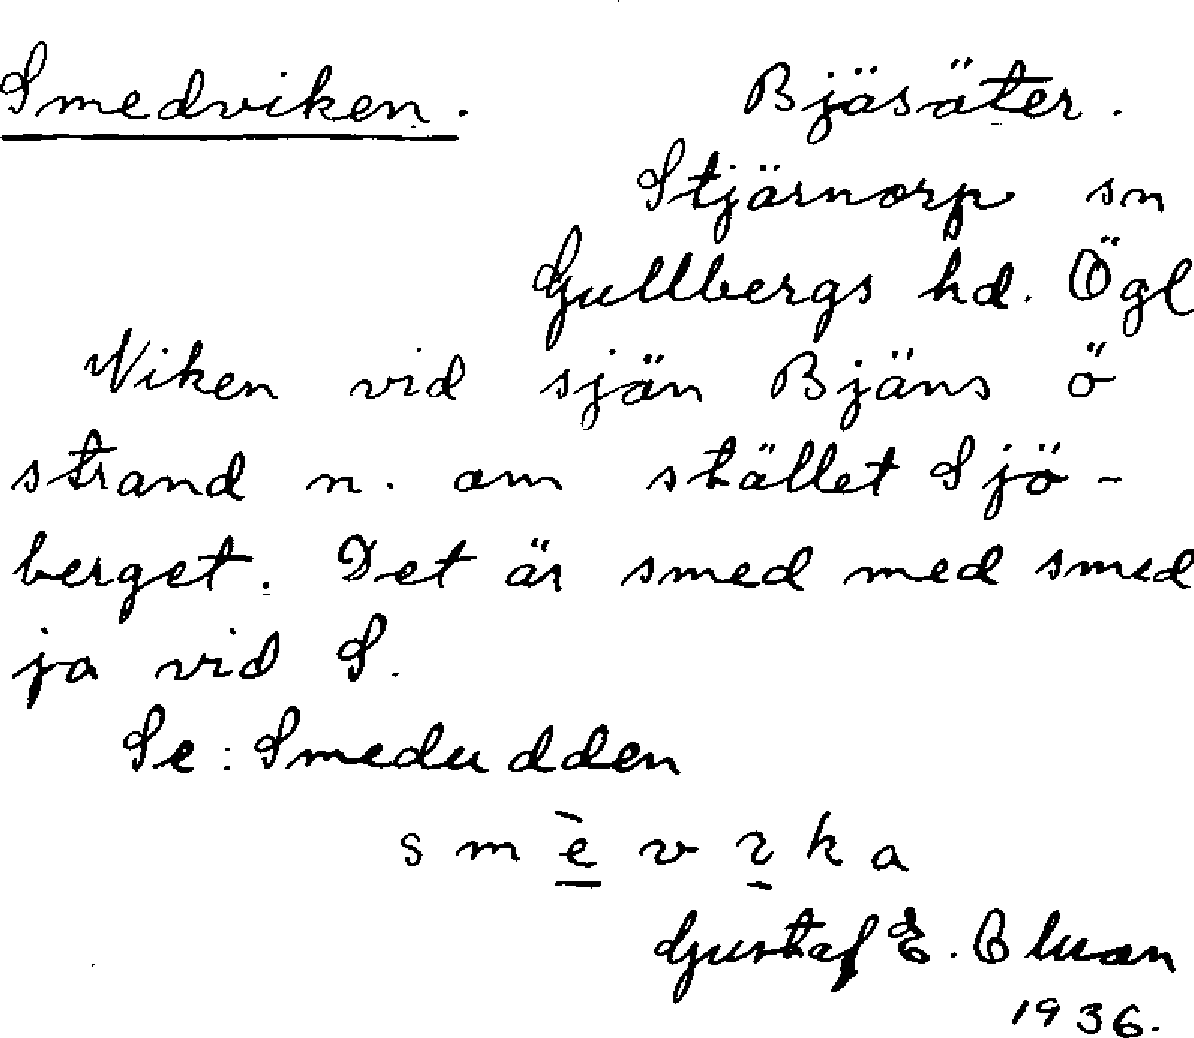 Smedviken. Bjäsäter.
Stjärnorp sn
Gullbergs hd. Ögl
Viken vid sjän Bjäns ö
strand n. om stället Sjö-
berget. Det är smed med smed
ja vid S.
Se: Smedudden
smèvıka
Gustaf E.
1936.